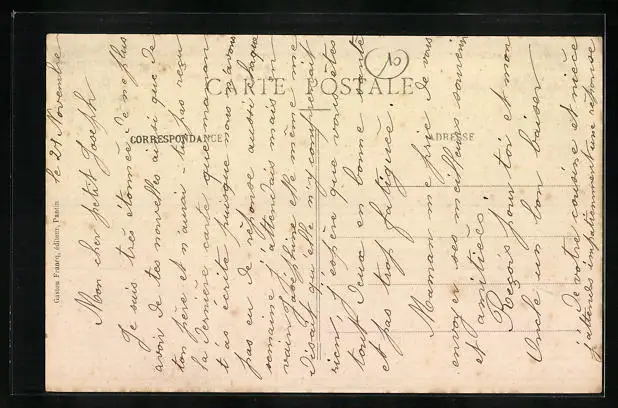 CARTE POSTALE
CORRESPONDANCE
ADRESSE
Gaston Francq, éditeur, Pantin
le 21 Novembre
Mon cher petit Joseph
Je suis très étonnée de ne plus
avoir de tes nouvelles ainsi que de
ton père et n'aurai-tu pas reçu
la dernière carte que maman
t'as écrite puisque nous n'avons
pas eu de réponse aussi chaque
semaine j'attendais mais en
vain Joséphine elle même me
disait qu'elle n'y comprenait
rien. J'espère que vous êtes
tout deux en bonne santé
et pas trop fatigué.
Maman me prie de vous
envoyer ses meilleurs souvenirs
et amitiés.
Reçois pour toi et mon
Oncle un bon baiser
De votre cousine et nièce
j'attends impatiemment une réponse